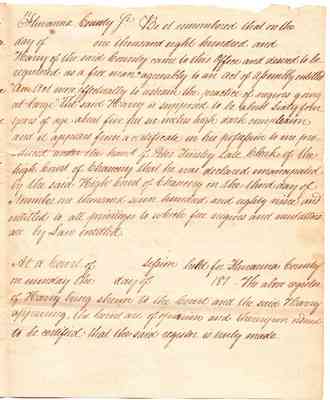 Fluvanna County Sc. Be it remembered that on the
day of one thousand eight hundred and
Harry of the said County came to this Office and desired to be
registered as a free man agreeably to an act of assembly entitled
"an Act more effectually to restrain the practice of negroes going
at large" The said Harry is supposed to be about Sixty four
years of age about five feet six inches high dark complexion
and it appears from a certificate in his possession to me pro-
duced under the hand of Peter Tinsley Late Clerk of the
high Court of Chancery that he was declared emancipated
by the said High Court of Chancery on the third day of
November one thousand seven hundred and eighty nine, and
entitled to all privileges to which free negroes and mulattoes
are by Law entitled.
At a Court of session held for Fluvanna County
on monday the day of 181 - The above register
of Harry being shewn to the Court and the said Harry
appearing, the Court are of opinion and thereupon ordered
to be certified that the said register is truly made